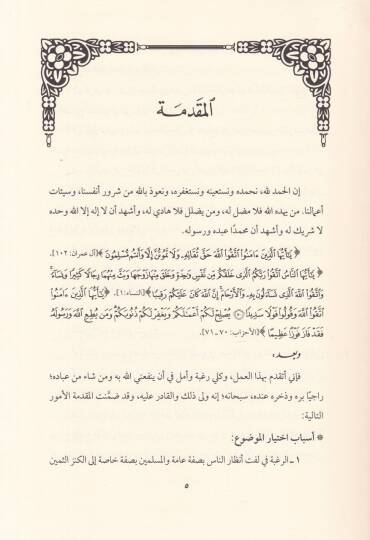 المقدمة
إن الحمد لله، نحمده ونستعينه ونستغفره، ونعوذ بالله من شرور أنفسنا، وسيئات
أعمالنا. من يهده الله فلا مضل له، ومن يضلل فلا هادي له، وأشهد أن لا إله إلا الله وحده
لا شريك له وأشهد أن محمدًا عبده ورسوله.
﴿يَٰٓأَيُّهَا ٱلَّذِينَ ءَامَنُوا۟ ٱتَّقُوا۟ ٱللَّهَ حَقَّ تُقَاتِهِۦ وَلَا تَمُوتُنَّ إِلَّا وَأَنتُم مُّسْلِمُونَ﴾ [آل عمران: ١٠٢].
﴿يَٰٓأَيُّهَا ٱلنَّاسُ ٱتَّقُوا۟ رَبَّكُمُ ٱلَّذِى خَلَقَكُم مِّن نَّفْسٍ وَٰحِدَةٍ وَخَلَقَ مِنْهَا زَوْجَهَا وَبَثَّ مِنْهُمَا رِجَالًا كَثِيرًا وَنِسَآءً
وَٱتَّقُوا۟ ٱللَّهَ ٱلَّذِى تَسَآءَلُونَ بِهِۦ وَٱلْأَرْحَامَ إِنَّ ٱللَّهَ كَانَ عَلَيْكُمْ رَقِيبًا﴾ [النساء: ١]. ﴿يَٰٓأَيُّهَا ٱلَّذِينَ ءَامَنُوا۟
ٱتَّقُوا۟ ٱللَّهَ وَقُولُوا۟ قَوْلًا سَدِيدًا ۝ يُصْلِحْ لَكُمْ أَعْمَٰلَكُمْ وَيَغْفِرْ لَكُمْ ذُنُوبَكُمْ وَمَن يُطِعِ ٱللَّهَ وَرَسُولَهُۥ
فَقَدْ فَازَ فَوْزًا عَظِيمًا﴾ [الأحزاب: ٧٠-٧١].
وبعد،
فإني أتقدم بهذا العمل، وكلي رغبة وأمل في أن ينفعني الله به ومن شاء من عباده؛
راجيًا بره وذخره عنده، سبحانه؛ إنه ولي ذلك والقادر عليه، وقد ضمَّنت المقدمة الأمور
التالية:
* أسباب اختيار الموضوع:
١ ـ الرغبة في لفت أنظار الناس بصفة عامة والمسلمين بصفة خاصة إلى الكنز الثمين
٥